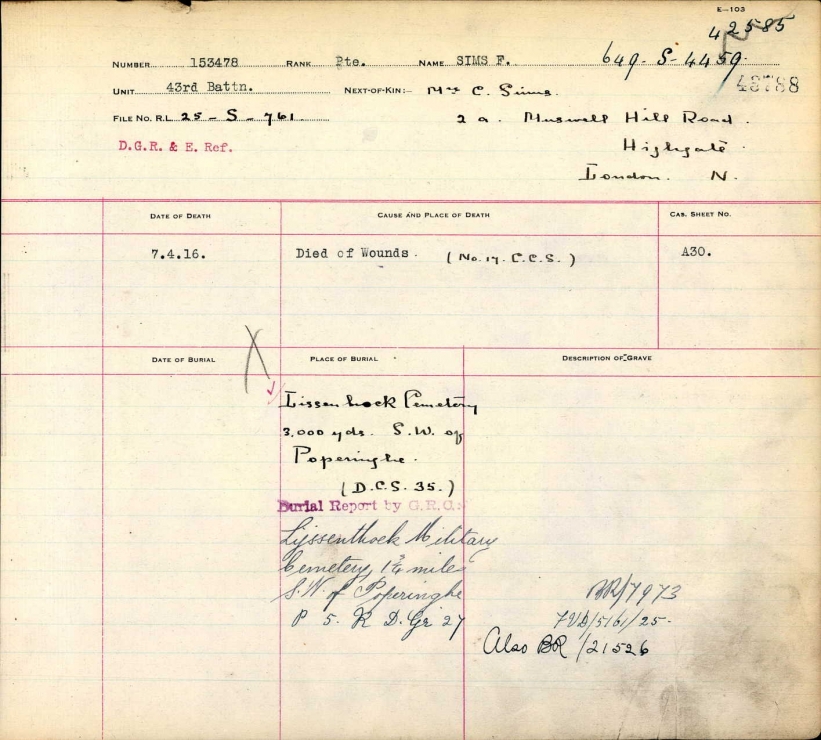 E—103
42585
NUMBER 153478 RANK Pte. NAME SIMS F. 649-S-4459.
48788
UNIT 43rd Battn. NEXT-OF-KIN:— Mrs C. Sims.
FILE No. R.L. 25 - S - 761 2 a. Muswell Hill Road.
D.G.R. & E. Ref. Highgate.
London. N.
DATE OF DEATH CAUSE AND PLACE OF DEATH CAS. SHEET NO.
7.4.16. Died of Wounds. (No. 17. C.C.S.) A30.
DATE OF BURIAL PLACE OF BURIAL DESCRIPTION OF GRAVE
X
Lissenhoek Cemetery
3,000 yds. S.W. of
Poperinghe.
(D.C.S. 35.)
Burial Report by G.R.O:
Lijssenthoek Military
Cemetery, 1¾ miles
S.W. of Poperinghe
P 5. R D. Gr 27
BR/7973
/5161/25.
Also BR /21526